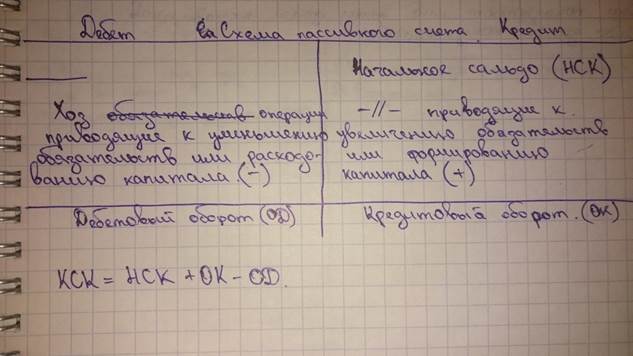 Дебет Схема пассивного счета. Кредит
Начальное сальдо (НСК)
Хоз операции -//- приводящие к
приводящие к уменьшению увеличению обязательств
обязательств или расходо- или формированию
ванию капитала (-) капитала (+)
Дебетовый оборот (ОД) Кредитовый оборот. (ОК)
КСК = НСК + ОК - ОД.